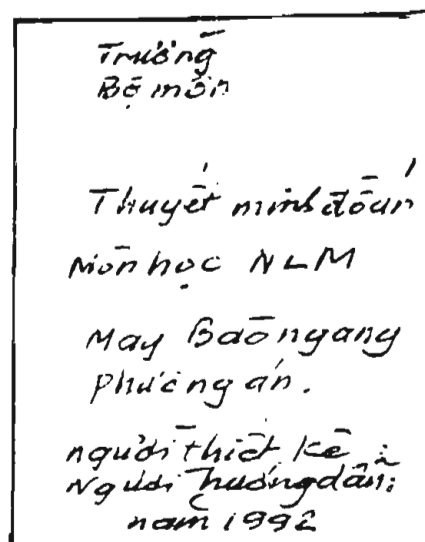 Trường
Bộ môn
Thuyết minh đồ án
Môn học NLM
Máy Bào ngang
phương án.
người thiết kế :
Người hướng dẫn :
năm 1992